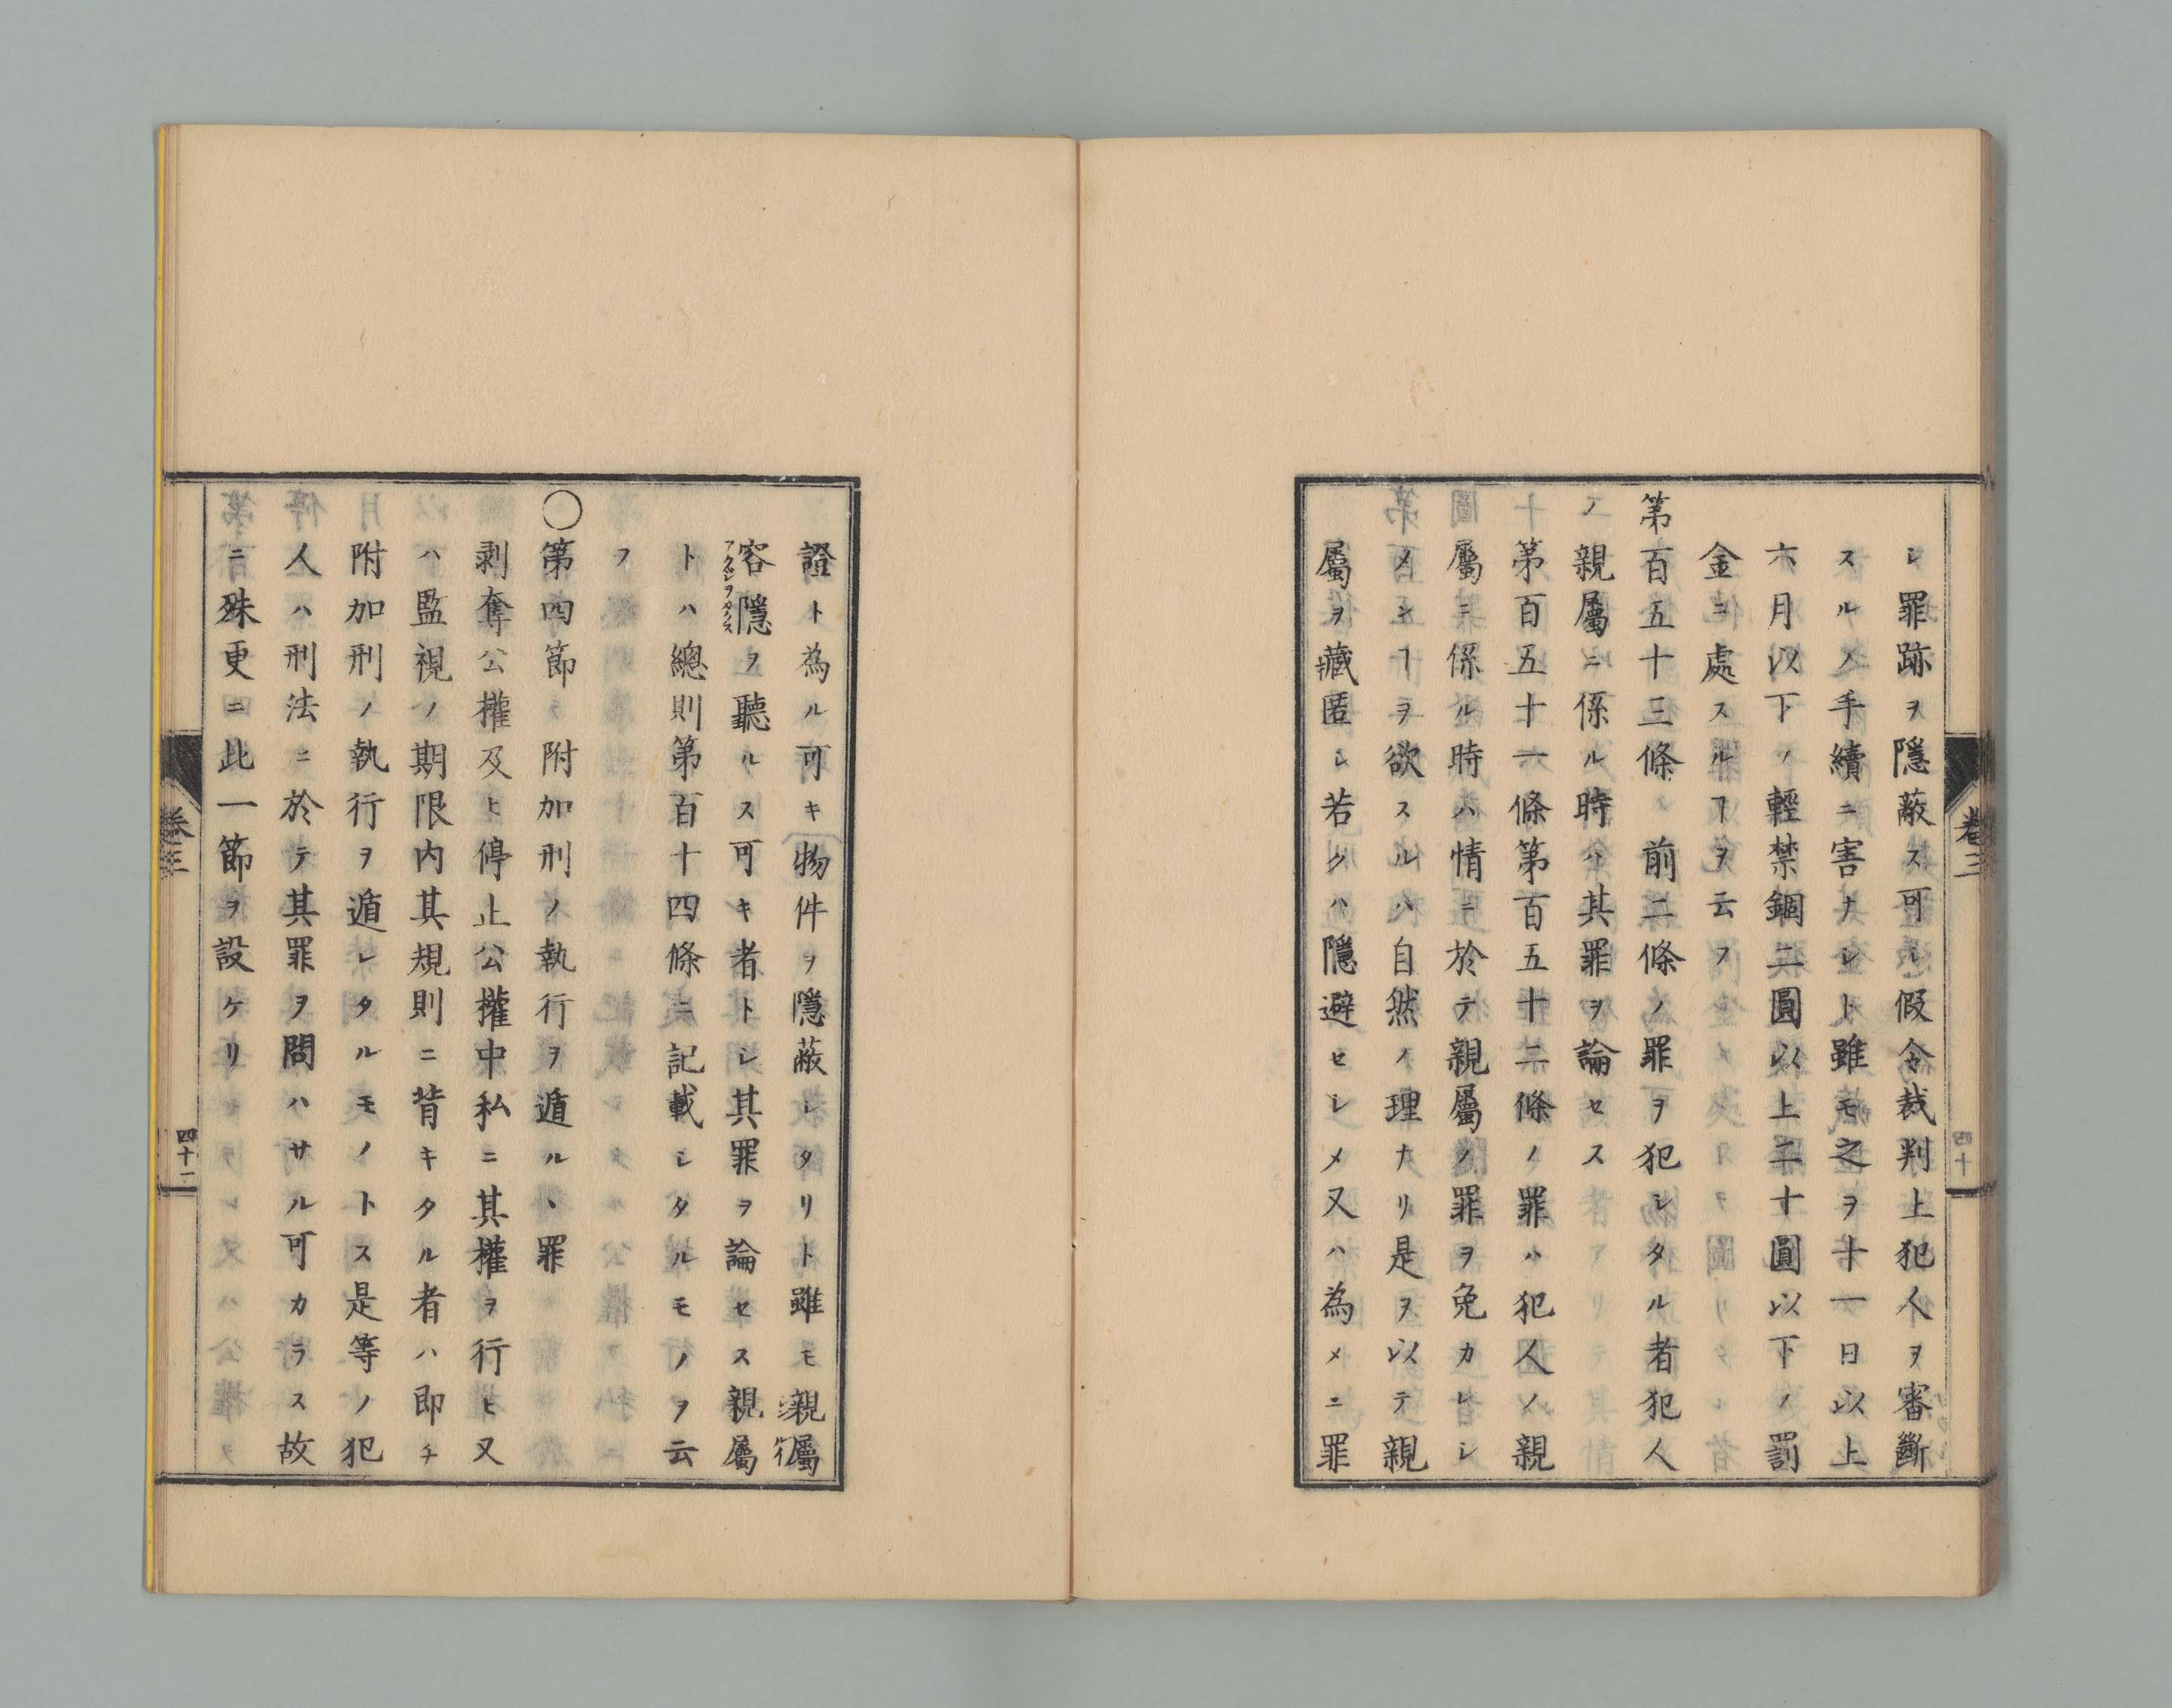 シ罪跡ヲ隱蔽ス可シ假令裁判上犯人ヲ審斷
スルノ手續ニ害ナシト雖モ之ヲ十一日以上
六月以下ノ輕禁錮二圓以上二十圓以下ノ罰
金ニ處スルヿヲ云フ
第百五十三條 前二條ノ罪ヲ犯シタル者犯人
ノ親屬ニ係ル時ハ其罪ヲ論セス
第百五十一條第百五十二條ノ罪ハ犯人ノ親
屬ニ係ル時ハ情ニ於テ親屬ノ罪ヲ免カレシ
メンヿヲ欲スルハ自然ノ理ナリ是ヲ以テ親
屬ヲ藏匿シ若クハ隱避セシメ又ハ為メニ罪
卷三
四十
證ト為ル可キ物件ヲ隱蔽シタリト雖モ親屬
容隱ヲ聽ルス可キ者トシ其罪ヲ論セス親屬
トハ總則第百十四條ニ記載シタルモノヲ云
フ
○第四節 附加刑ノ執行ヲ遁ルヽ罪
剥奪公權及ヒ停止公權中私ニ其權ヲ行ヒ又
ハ監視ノ期限内其規則ニ背キタル者ハ即チ
附加刑ノ執行ヲ遁レタルモノトス是等ノ犯
人ハ刑法ニ於テ其罪ヲ問ハサル可カラス故
ニ殊更ニ此一節ヲ設ケリ
卷三
四十一